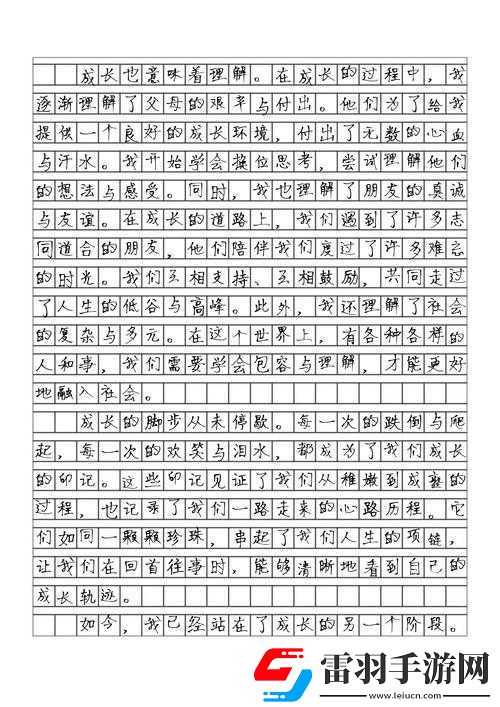 成长也意味着理解。在成长的过程中，我
逐渐理解了父母的艰辛与付出。他们为了给我
提供一个良好的成长环境，付出了无数的心血
与汗水。我开始学会换位思考，尝试理解他们
的想法与感受。同时，我也理解了朋友的真诚
与友谊。在成长的道路上，我们遇到了许多志
同道合的朋友，他们陪伴我们度过了许多难忘
的时光。我们互相支持、互相鼓励，共同走过
了人生的低谷与高峰。此外，我还理解了社会
的复杂与多元。在这个世界上，有各种各样的
人和事，我们需要学会包容与理解，才能更好
地融入社会。
成长的脚步从未停歇。每一次的跌倒与爬
起，每一次的欢笑与泪水，都成为了我们成长
的印记。这些印记见证了我们从稚嫩到成熟的
过程，也记录了我们一路走来的心路历程。它
们如同一颗颗珍珠，串起了我们人生的项链，
让我们在回首往事时，能够清晰地看到自己的
成长轨迹。
如今，我已经站在了成长的另一个阶段。
雷羽手游网
www.leiucn.com